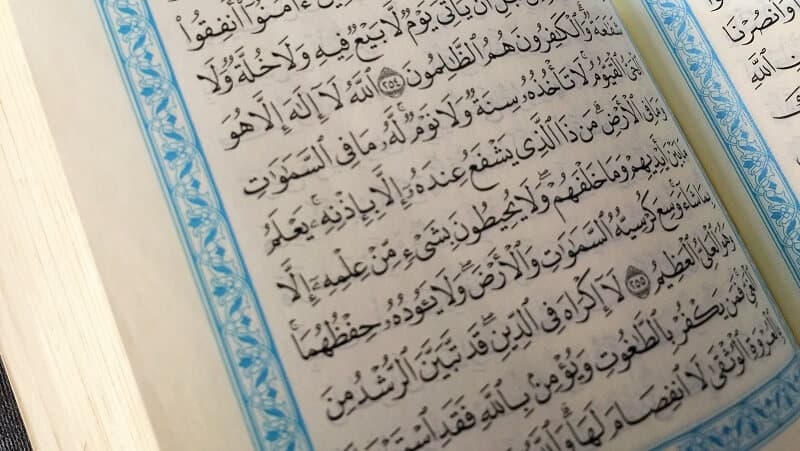 ءَامَنُوٓا۟ أَنفِقُوا۟
أَن يَأْتِىَ يَوْمٌ لَّا بَيْعٌ فِيهِ وَلَا خُلَّةٌ وَلَا
شَفَٰعَةٌ ۗ وَٱلْكَٰفِرُونَ هُمُ ٱلظَّٰلِمُونَ ٢٥٤ ٱللَّهُ لَآ إِلَٰهَ إِلَّا هُوَ
ٱلْحَىُّ ٱلْقَيُّومُ ۚ لَا تَأْخُذُهُۥ سِنَةٌ وَلَا نَوْمٌ ۚ لَّهُۥ مَا فِى ٱلسَّمَٰوَٰتِ
وَمَا فِى ٱلْأَرْضِ ۗ مَن ذَا ٱلَّذِى يَشْفَعُ عِندَهُۥٓ إِلَّا بِإِذْنِهِۦ ۚ يَعْلَمُ
مَا بَيْنَ أَيْدِيهِمْ وَمَا خَلْفَهُمْ ۖ وَلَا يُحِيطُونَ بِشَىْءٍ مِّنْ عِلْمِهِۦٓ إِلَّا
بِمَا شَآءَ ۚ وَسِعَ كُرْسِيُّهُ ٱلسَّمَٰوَٰتِ وَٱلْأَرْضَ ۖ وَلَا يَـُٔودُهُۥ حِفْظُهُمَا ۚ
وَهُوَ ٱلْعَلِىُّ ٱلْعَظِيمُ ٢٥٥ لَآ إِكْرَاهَ فِى ٱلدِّينِ ۖ قَد تَّبَيَّنَ ٱلرُّشْدُ مِنَ
ٱلْغَىِّ ۚ فَمَن يَكْفُرْ بِٱلطَّٰغُوتِ وَيُؤْمِنۢ بِٱللَّهِ فَقَدِ
بِٱلْعُرْوَةِ ٱلْوُثْقَىٰ لَا ٱنفِصَامَ لَهَا ۗ وَٱللَّهُ
وَٱنصُرْنَا
ٱللَّهِ